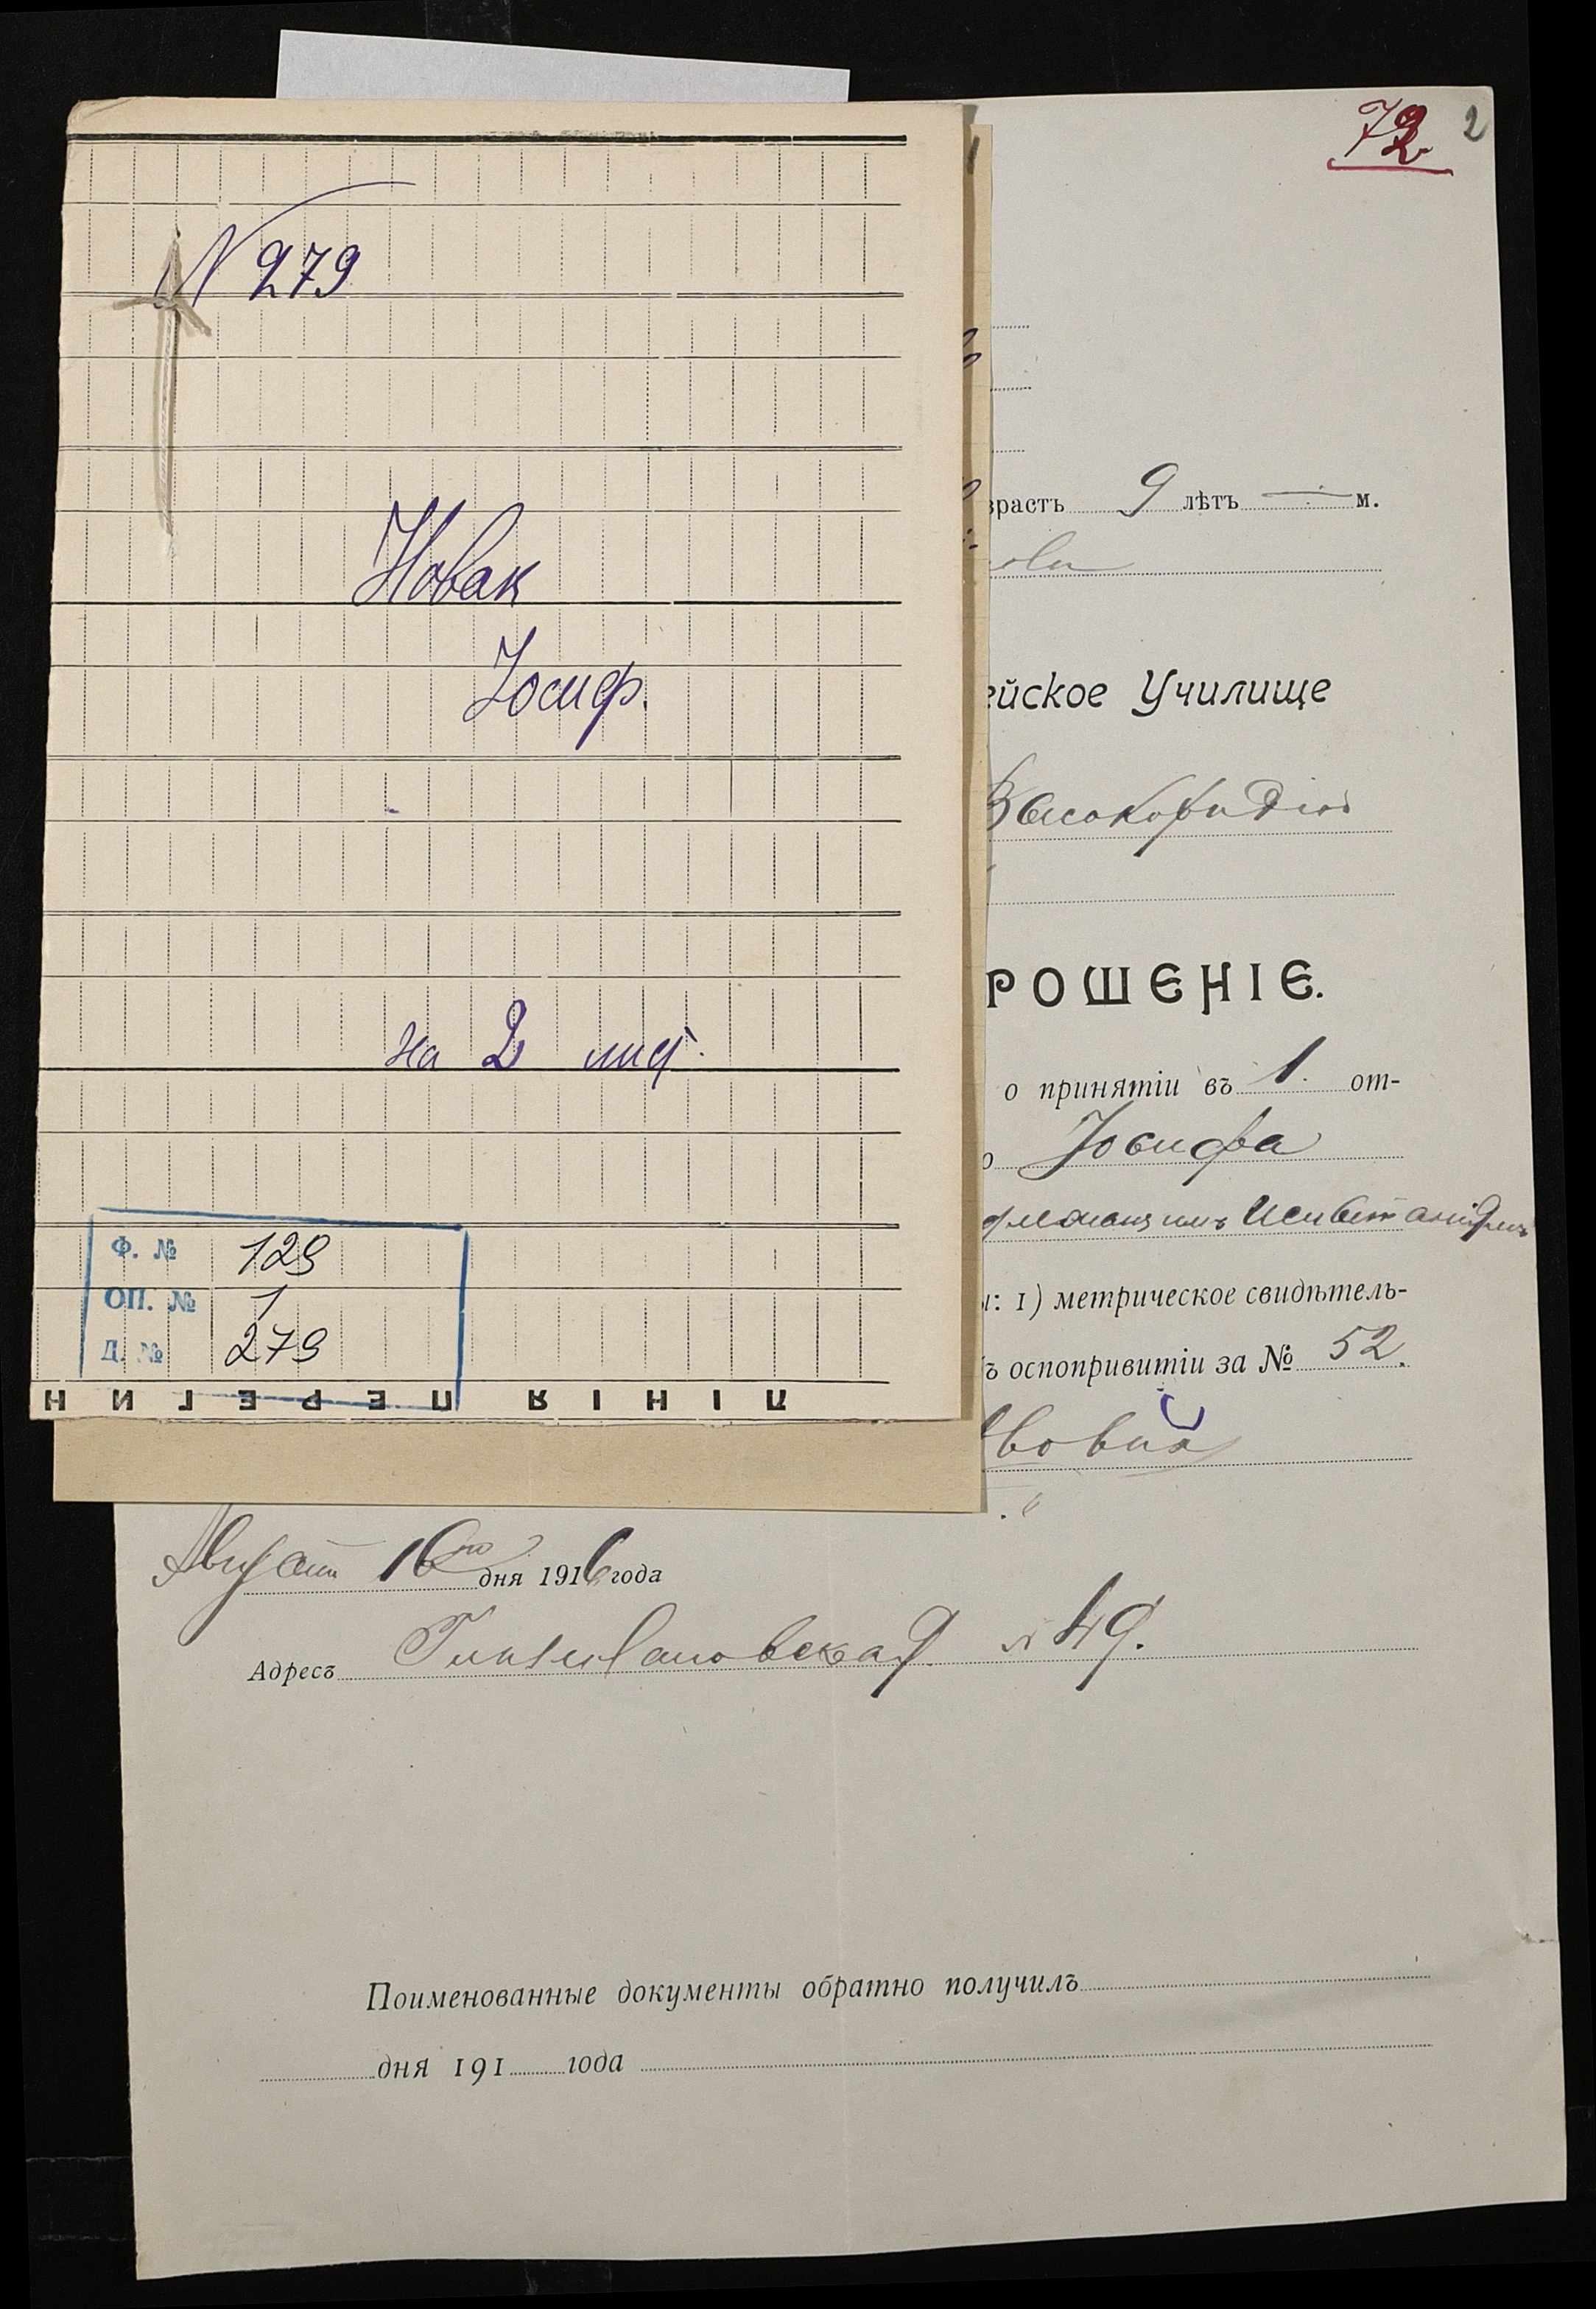 72 2
N 279
Новак
Іосиф.
на 2 лист.
Ф. № 129
ОП. № 1
Д. № 279
ЛІНІЯ ПЕРЕГИН
зрастъ 9 лѣтъ — м.
ейское Училище
РОШЕНІЕ.
о принятіи въ 1. от-
о Іосифа
ы: 1) метрическое свидѣтель-
ъ оспопривитіи за № 52.
Августа 16го дня 1916 года
Адресъ № 49.
Поименованные документы обратно получилъ
дня 191 года